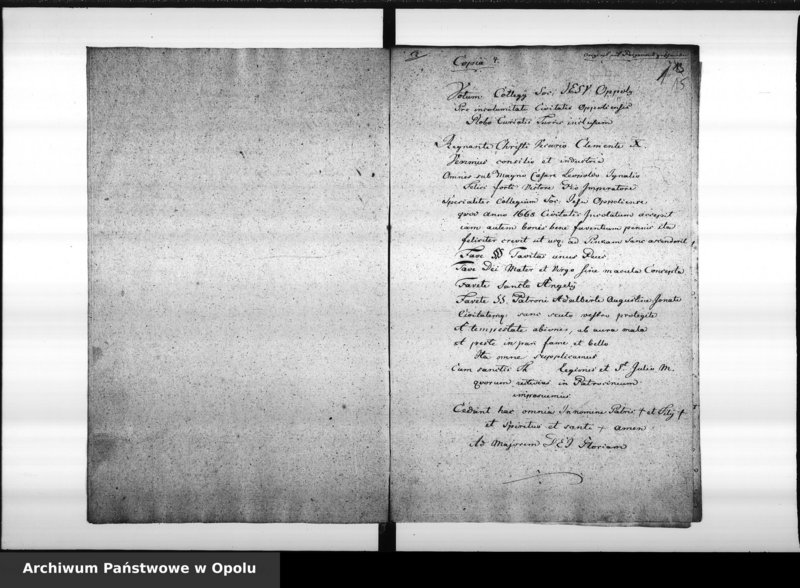 Copia
Votum Collegij Soc: JESV Oppoly
Pro incolumitate Civitatis Oppoliensis
Globo Curiatis Turris inclusum
Regnante Christi Vicario Clemente X.
consilio et industria
Omnes sub Magno Casare Leopoldo Ignatio
forti Victore Pio Imperatore
Specialiter Collegium Soc: Jesu Oppoliense
quod anno 1668 Civitatis Incolatum accepit
cum autem bonis bene faventium penuis ita
feliciter crevit ut usq ad sane ascenderit
Fave unus Deus
Fave Dei Mater et Virgo sine macula Concepta
Favete Sancti Angely
Favete SS. Patroni Adalberte Augustine Donate
Civitatemq sane scuto vestro protegite
A tempestate abiones, ab aura mala
et peste fame et bello
Ita omne supplicamus
Cum sanctis Th Legionis et St. Julio M.
quorum in Patrocinium
imposuimus
Cedant hac omnia Patris + et Filij +
et Spiritus et santi + amen
Ad Majorem DEI Gloriam
Archiwum Państwowe w Opolu